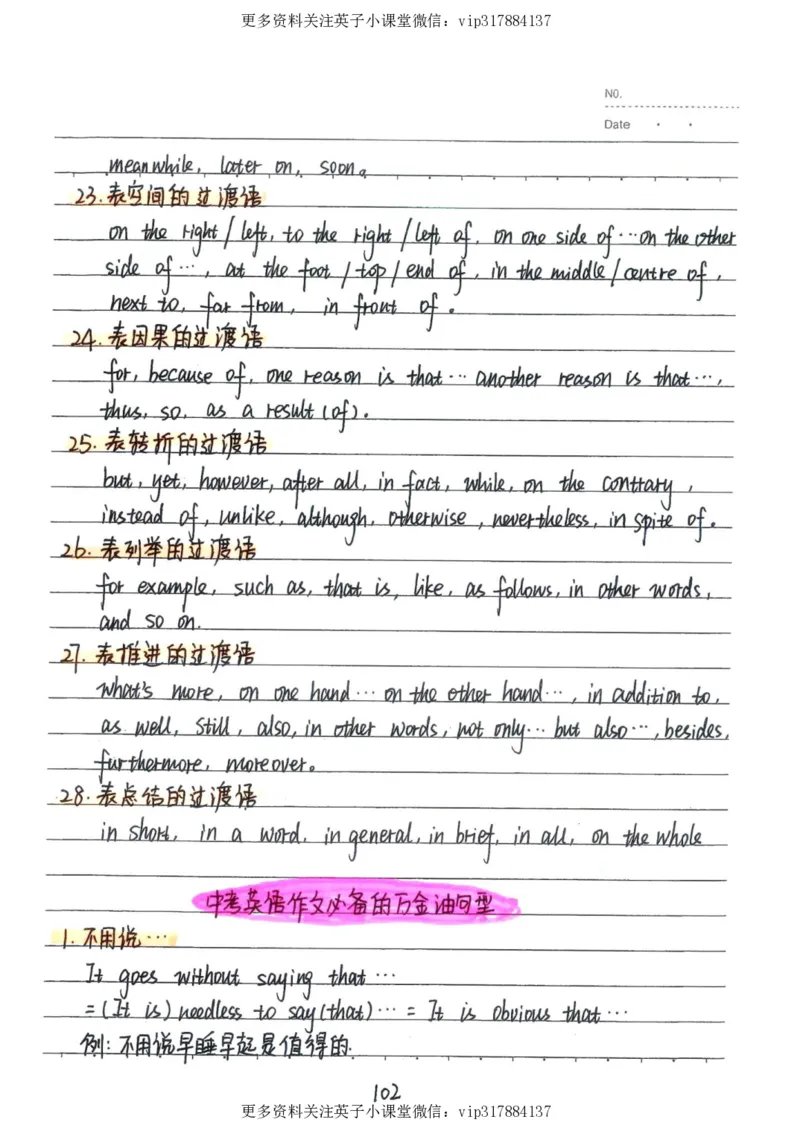 更多资料关注英子小课堂微信：vip317884137
NO.
Date
meanwhile, later on, soon。
23.表空间的过渡语
on the right / left, to the right / left of, on one side of … on the other
side of …, at the foot / top / end of, in the middle / centre of,
next to, far from, in front of。
24.表因果的过渡语
for, because of, one reason is that … another reason is that …,
thus, so, as a result (of)。
25.表转折的过渡语
but, yet, however, after all, in fact, while, on the contrary,
instead of, unlike, although, otherwise, nevertheless, in spite of。
26.表列举的过渡语
for example, such as, that is, like, as follows, in other words,
and so on.
27.表推进的过渡语
what's more, on one hand … on the other hand …, in addition to,
as well, still, also, in other words, not only … but also …, besides,
furthermore, moreover。
28.表总结的过渡语
in short, in a word, in general, in brief, in all, on the whole
中考英语作文必备的万金油句型
1.不用说…
It goes without saying that …
=(It is) needless to say (that) … = It is obvious that …
例：不用说早睡早起是值得的.
102
更多资料关注英子小课堂微信：vip317884137